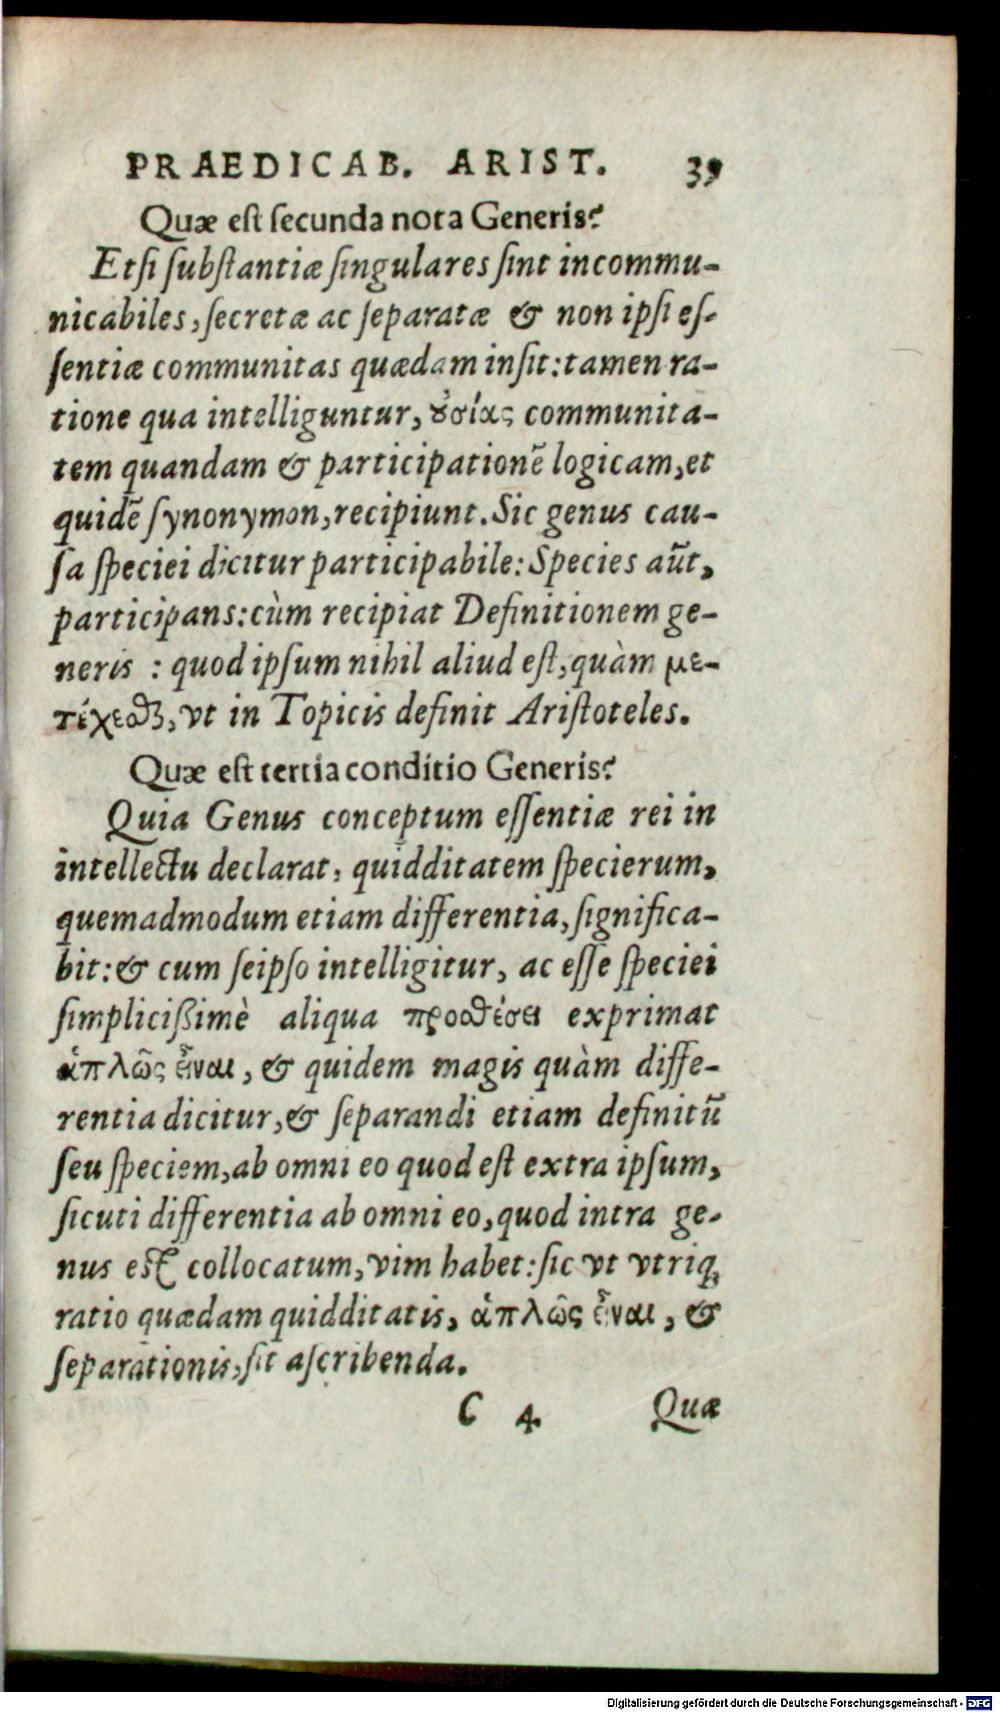 PRAEDICAB. ARIST. 39
Quæ est secunda nota Generis?
Etsi substantiæ singulares sint incommu-
nicabiles, secretæ ac separatæ & non ipsi es-
sentiæ communitas quædam insit: tamen ra-
tione qua intelliguntur, ȣ̓σίας communita-
tem quandam & participationē logicam, et
quidē synonymon, recipiunt. Sic genus cau-
sa speciei dicitur participabile: Species aūt,
participans: cùm recipiat Definitionem ge-
neris : quod ipsum nihil aliud est, quàm με-
τέχεσθαι, vt in Topicis definit Aristoteles.
Quæ est tertia conditio Generis?
Quia Genus conceptum essentiæ rei in
intellectu declarat: quidditatem specierum,
quemadmodum etiam differentia, significa-
bit: & cum seipso intelligitur, ac esse speciei
simplicißimè aliqua προσθέσει exprimat
ἁπλῶς εἶναι, & quidem magis quàm diffe-
rentia dicitur, & separandi etiam definitū
seu speciem, ab omni eo quod est extra ipsum,
sicuti differentia ab omni eo, quod intra ge-
nus est collocatum, vim habet: sic vt vtriq;
ratio quædam quidditatis, ἁπλῶς εἶναι, &
separationis, sit ascribenda.
C 4 Quæ
Digitalisierung gefördert durch die Deutsche Forschungsgemeinschaft - DFG